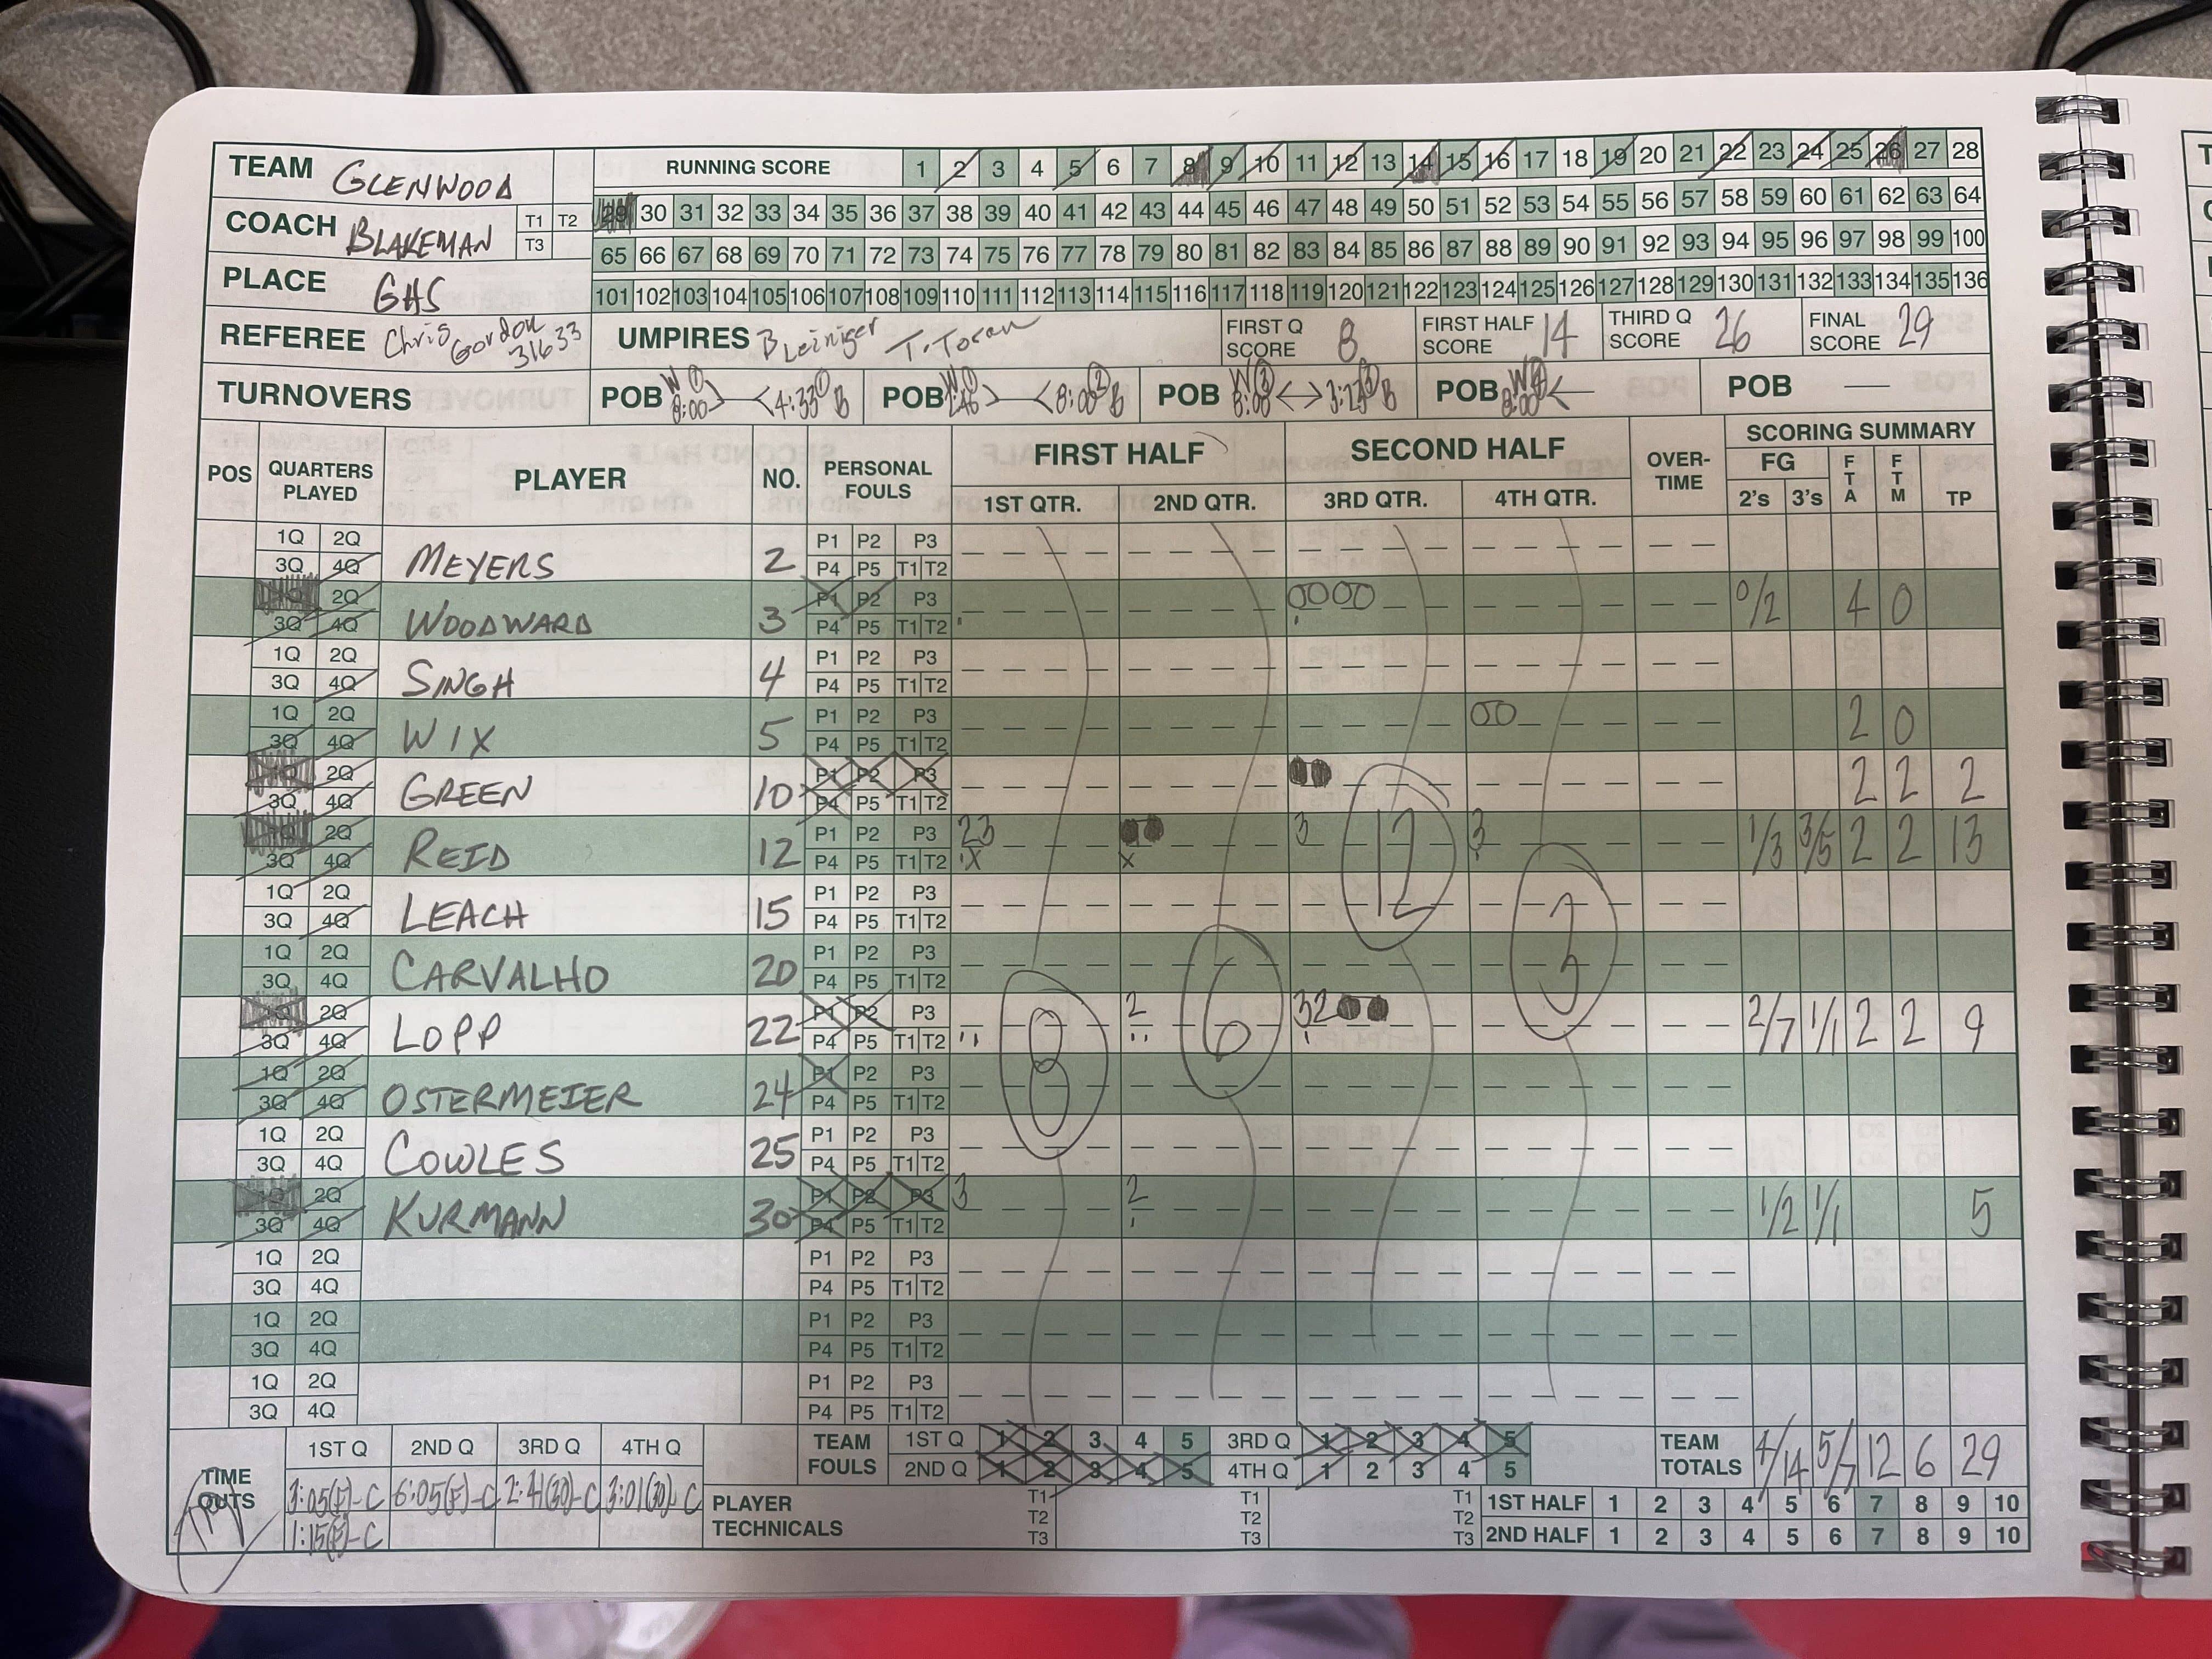 TEAM GLENWOOD
COACH BLAKEMAN T1 T2 T3
PLACE GHS
RUNNING SCORE 1 2 3 4 5 6 7 8 9 10 11 12 13 14 15 16 17 18 19 20 21 22 23 24 25 26 27 28
29 30 31 32 33 34 35 36 37 38 39 40 41 42 43 44 45 46 47 48 49 50 51 52 53 54 55 56 57 58 59 60 61 62 63 64
65 66 67 68 69 70 71 72 73 74 75 76 77 78 79 80 81 82 83 84 85 86 87 88 89 90 91 92 93 94 95 96 97 98 99 100
101 102 103 104 105 106 107 108 109 110 111 112 113 114 115 116 117 118 119 120 121 122 123 124 125 126 127 128 129 130 131 132 133 134 135 136
REFEREE Chris Gordon 31633 UMPIRES Bleiniger T. Toran FIRST Q SCORE 8 FIRST HALF SCORE 14 THIRD Q SCORE 26 FINAL SCORE 29
TURNOVERS POB W 1 8:00 4:33 1 B POB W 8:00 2 B POB W 3 8:00 B POB W 4 8:00 POB —
POS QUARTERS PLAYED PLAYER NO. PERSONAL FOULS FIRST HALF SECOND HALF OVER-TIME SCORING SUMMARY
1ST QTR. 2ND QTR. 3RD QTR. 4TH QTR. FG 2's 3's FTA FTM TP
1Q 2Q 3Q 4Q MEYERS 2 P1 P2 P3 P4 P5 T1 T2
1Q 2Q 3Q 4Q WOODWARD 3 P1 P2 P3 P4 P5 T1 T2 0000 0/2 4 0
1Q 2Q 3Q 4Q SINGH 4 P1 P2 P3 P4 P5 T1 T2
1Q 2Q 3Q 4Q WIX 5 P1 P2 P3 P4 P5 T1 T2 00 2 0
1Q 2Q 3Q 4Q GREEN 10 P1 P2 P3 P4 P5 T1 T2 2 2 2
1Q 2Q 3Q 4Q REID 12 P1 P2 P3 P4 P5 T1 T2 23 X x 3 12 3 1/3 3/5 2 2 13
1Q 2Q 3Q 4Q LEACH 15 P1 P2 P3 P4 P5 T1 T2
1Q 2Q 3Q 4Q CARVALHO 20 P1 P2 P3 P4 P5 T1 T2 3
1Q 2Q 3Q 4Q LOPP 22 P1 P2 P3 P4 P5 T1 T2 8 2 6 32 2/7 1/1 2 2 9
1Q 2Q 3Q 4Q OSTERMEIER 24 P1 P2 P3 P4 P5 T1 T2
1Q 2Q 3Q 4Q COWLES 25 P1 P2 P3 P4 P5 T1 T2
1Q 2Q 3Q 4Q KURMANN 30 P1 P2 P3 P4 P5 T1 T2 3 2 1/2 1/1 5
1Q 2Q 3Q 4Q P1 P2 P3 P4 P5 T1 T2
1Q 2Q 3Q 4Q P1 P2 P3 P4 P5 T1 T2
1Q 2Q 3Q 4Q P1 P2 P3 P4 P5 T1 T2
TIME OUTS 1ST Q 2ND Q 3RD Q 4TH Q
3:05(F)-C 6:05(F)-C 2:41(30)-C 3:01(30)-C
1:15(F)-C
TEAM FOULS 1ST Q 1 2 3 4 5 3RD Q 1 2 3 4 5
2ND Q 1 2 3 4 5 4TH Q 1 2 3 4 5
TEAM TOTALS 4/14 5/7 12 6 29
PLAYER TECHNICALS T1 T2 T3 T1 T2 T3 T1 T2 T3
1ST HALF 1 2 3 4 5 6 7 8 9 10
2ND HALF 1 2 3 4 5 6 7 8 9 10